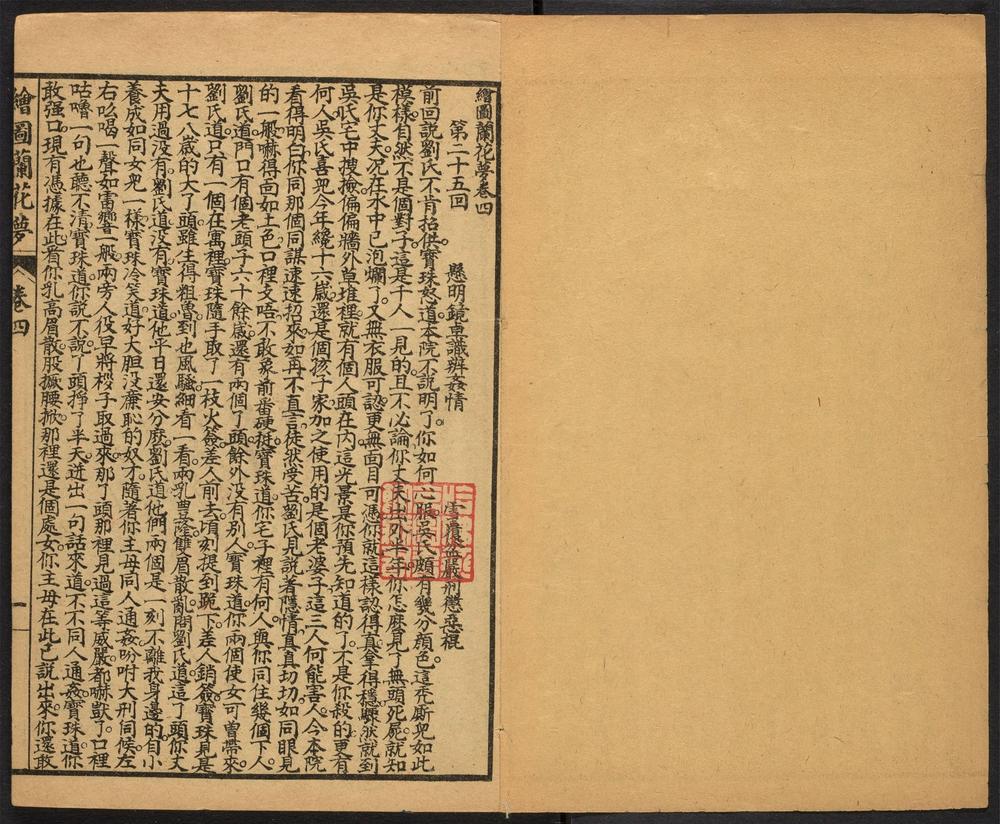 繪圖蘭花夢卷四
第二十五回　懸明鏡卓識辨姦情　雪覆盆嚴刑懲惡棍
前回說劉氏不肯招供寶珠怒道本院不說明了你如何心服吳氏頗有幾分顏色這禿廝兒如此
模樣自然不是個對子這是千人一見的且不必論你丈夫出外半年你怎麽見了無頭死屍就知
是你丈夫况在水中已泡爛了又無衣服可認更無面目可憑你就這樣認得真拿得穩驟然就到
吳氏宅中搜撿偏偏牆外草堆裡就有個人頭在內這光景是你預先知道的了不是你殺的更有
何人吳氏喜兒今年纔十六歲還是個孩子家加之使用的是個老婆子這三人何能害人今本院
看得明白你同那個同謀速速招來如再不直言徒然受苦劉氏見說着隱情真真切切如同眼見
的一般嚇得面如土色口裡支唔不敢象前番硬挺寶珠道你宅子裡有何人與你同住幾個下人
劉氏道門口有個老頭子六十餘歲還有兩個丫頭餘外沒有別人寶珠道你兩個使女可曾帶來
劉氏道只有一個在寓裡寶珠隨手取了一枝火簽差人前去頃刻提到跪下差人銷簽寶珠見是
十七八歲的大丫頭雖生得粗魯到也風騷細看一看兩乳豐蓬雙眉散亂問劉氏道這丫頭你丈
夫用過沒有劉氏道沒有寶珠道他平日還安分麽劉氏道他們兩個是一刻不離我身邊的自小
養成如同女兒一樣寶珠冷笑道好大胆没亷恥的奴才隨著你主母同人通姦吩咐大刑伺候左
右吆喝一聲如雷響一般兩旁人役早將椶子取過來那丫頭那裡見過這等威嚴都嚇獃了口裡
咕嚕一句也聽不清寶珠道你說不說丫頭掙了半天迸出一句話來道不不同人通姦寶珠道你
敢强口現有憑據在此看你乳高眉散股撅腰掀那裡還是個處女你主母在此已說出來你還敢
繪圖蘭花夢　卷四　一